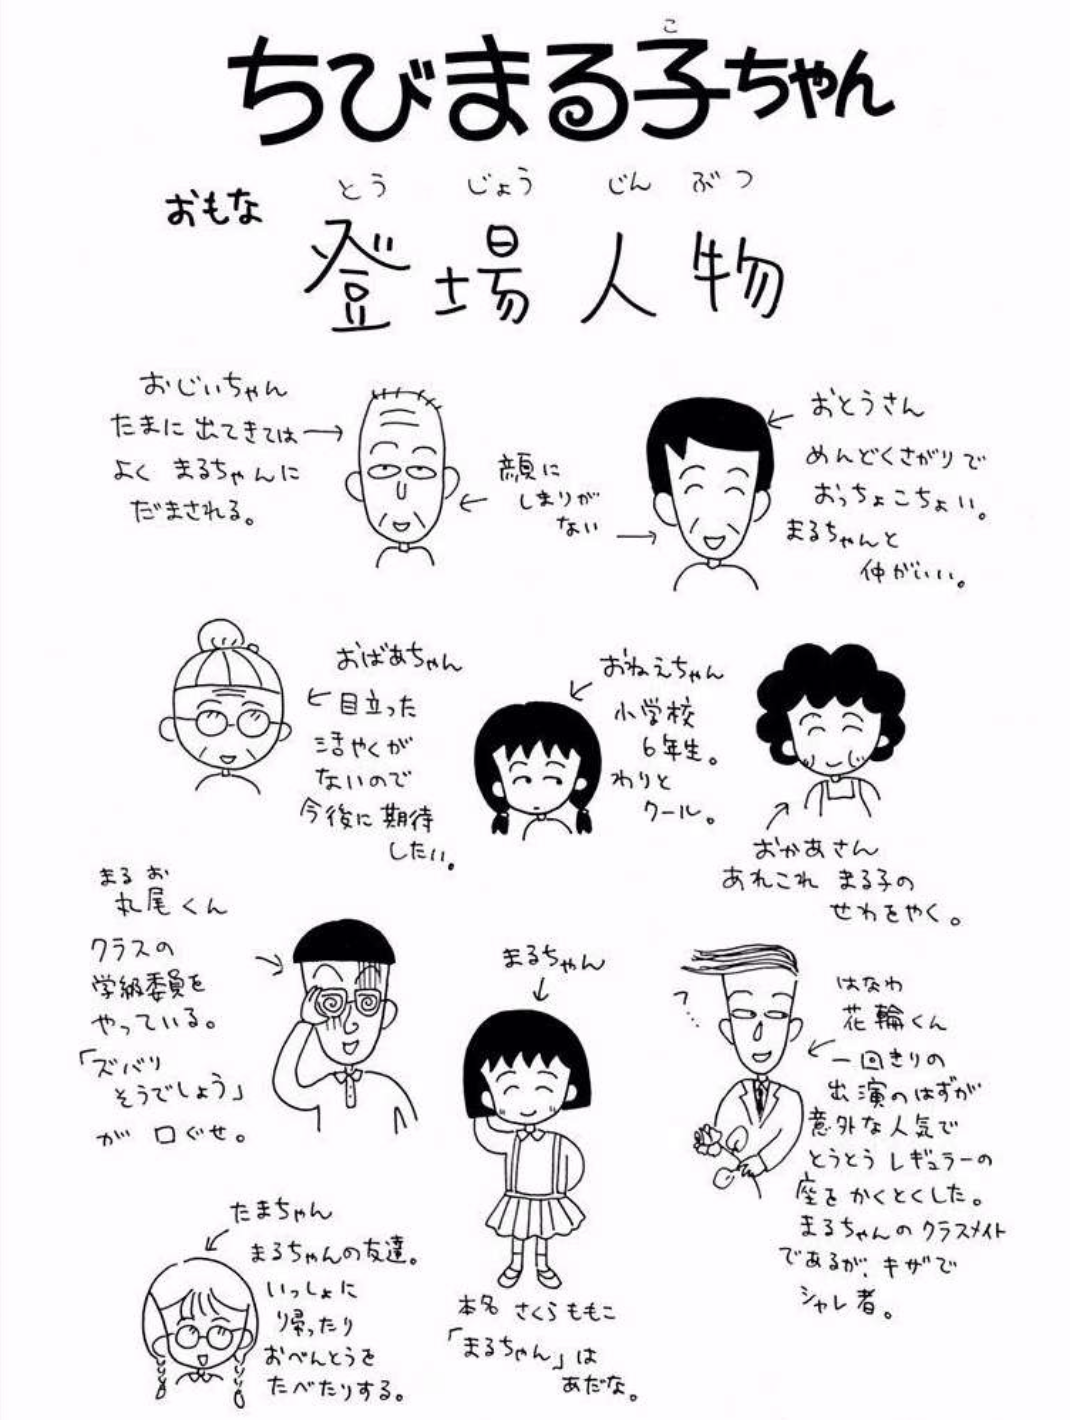 ちびまる子ちゃん
こ
おもな
とう じょう じん ぶつ
登場人物
おじいちゃん
たまに出てきては
よく まるちゃんに
だまされる。
顔に
しまりが
ない
おとうさん
めんどくさがりで
おっちょこちょい。
まるちゃんと
仲がいい。
おばあちゃん
目立った
活やくが
ないので
今後に期待
したい。
おねえちゃん
小学校
6年生。
わりと
クール。
おかあさん
あれこれ まる子の
せわをやく。
まる お
丸尾くん
クラスの
学級委員を
やっている。
「ズバリ
そうでしょう」
が 口ぐせ。
まるちゃん
本名 さくらももこ
「まるちゃん」は
あだな。
はなわ
花輪くん
一回きりの
出演のはずが
意外な人気で
とうとう レギュラーの
座を かくとくした。
まるちゃんの クラスメイト
であるが、キザで
シャレ者。
フ…
たまちゃん
まるちゃんの友達。
いっしょに
帰ったり
おべんとうを
たべたりする。